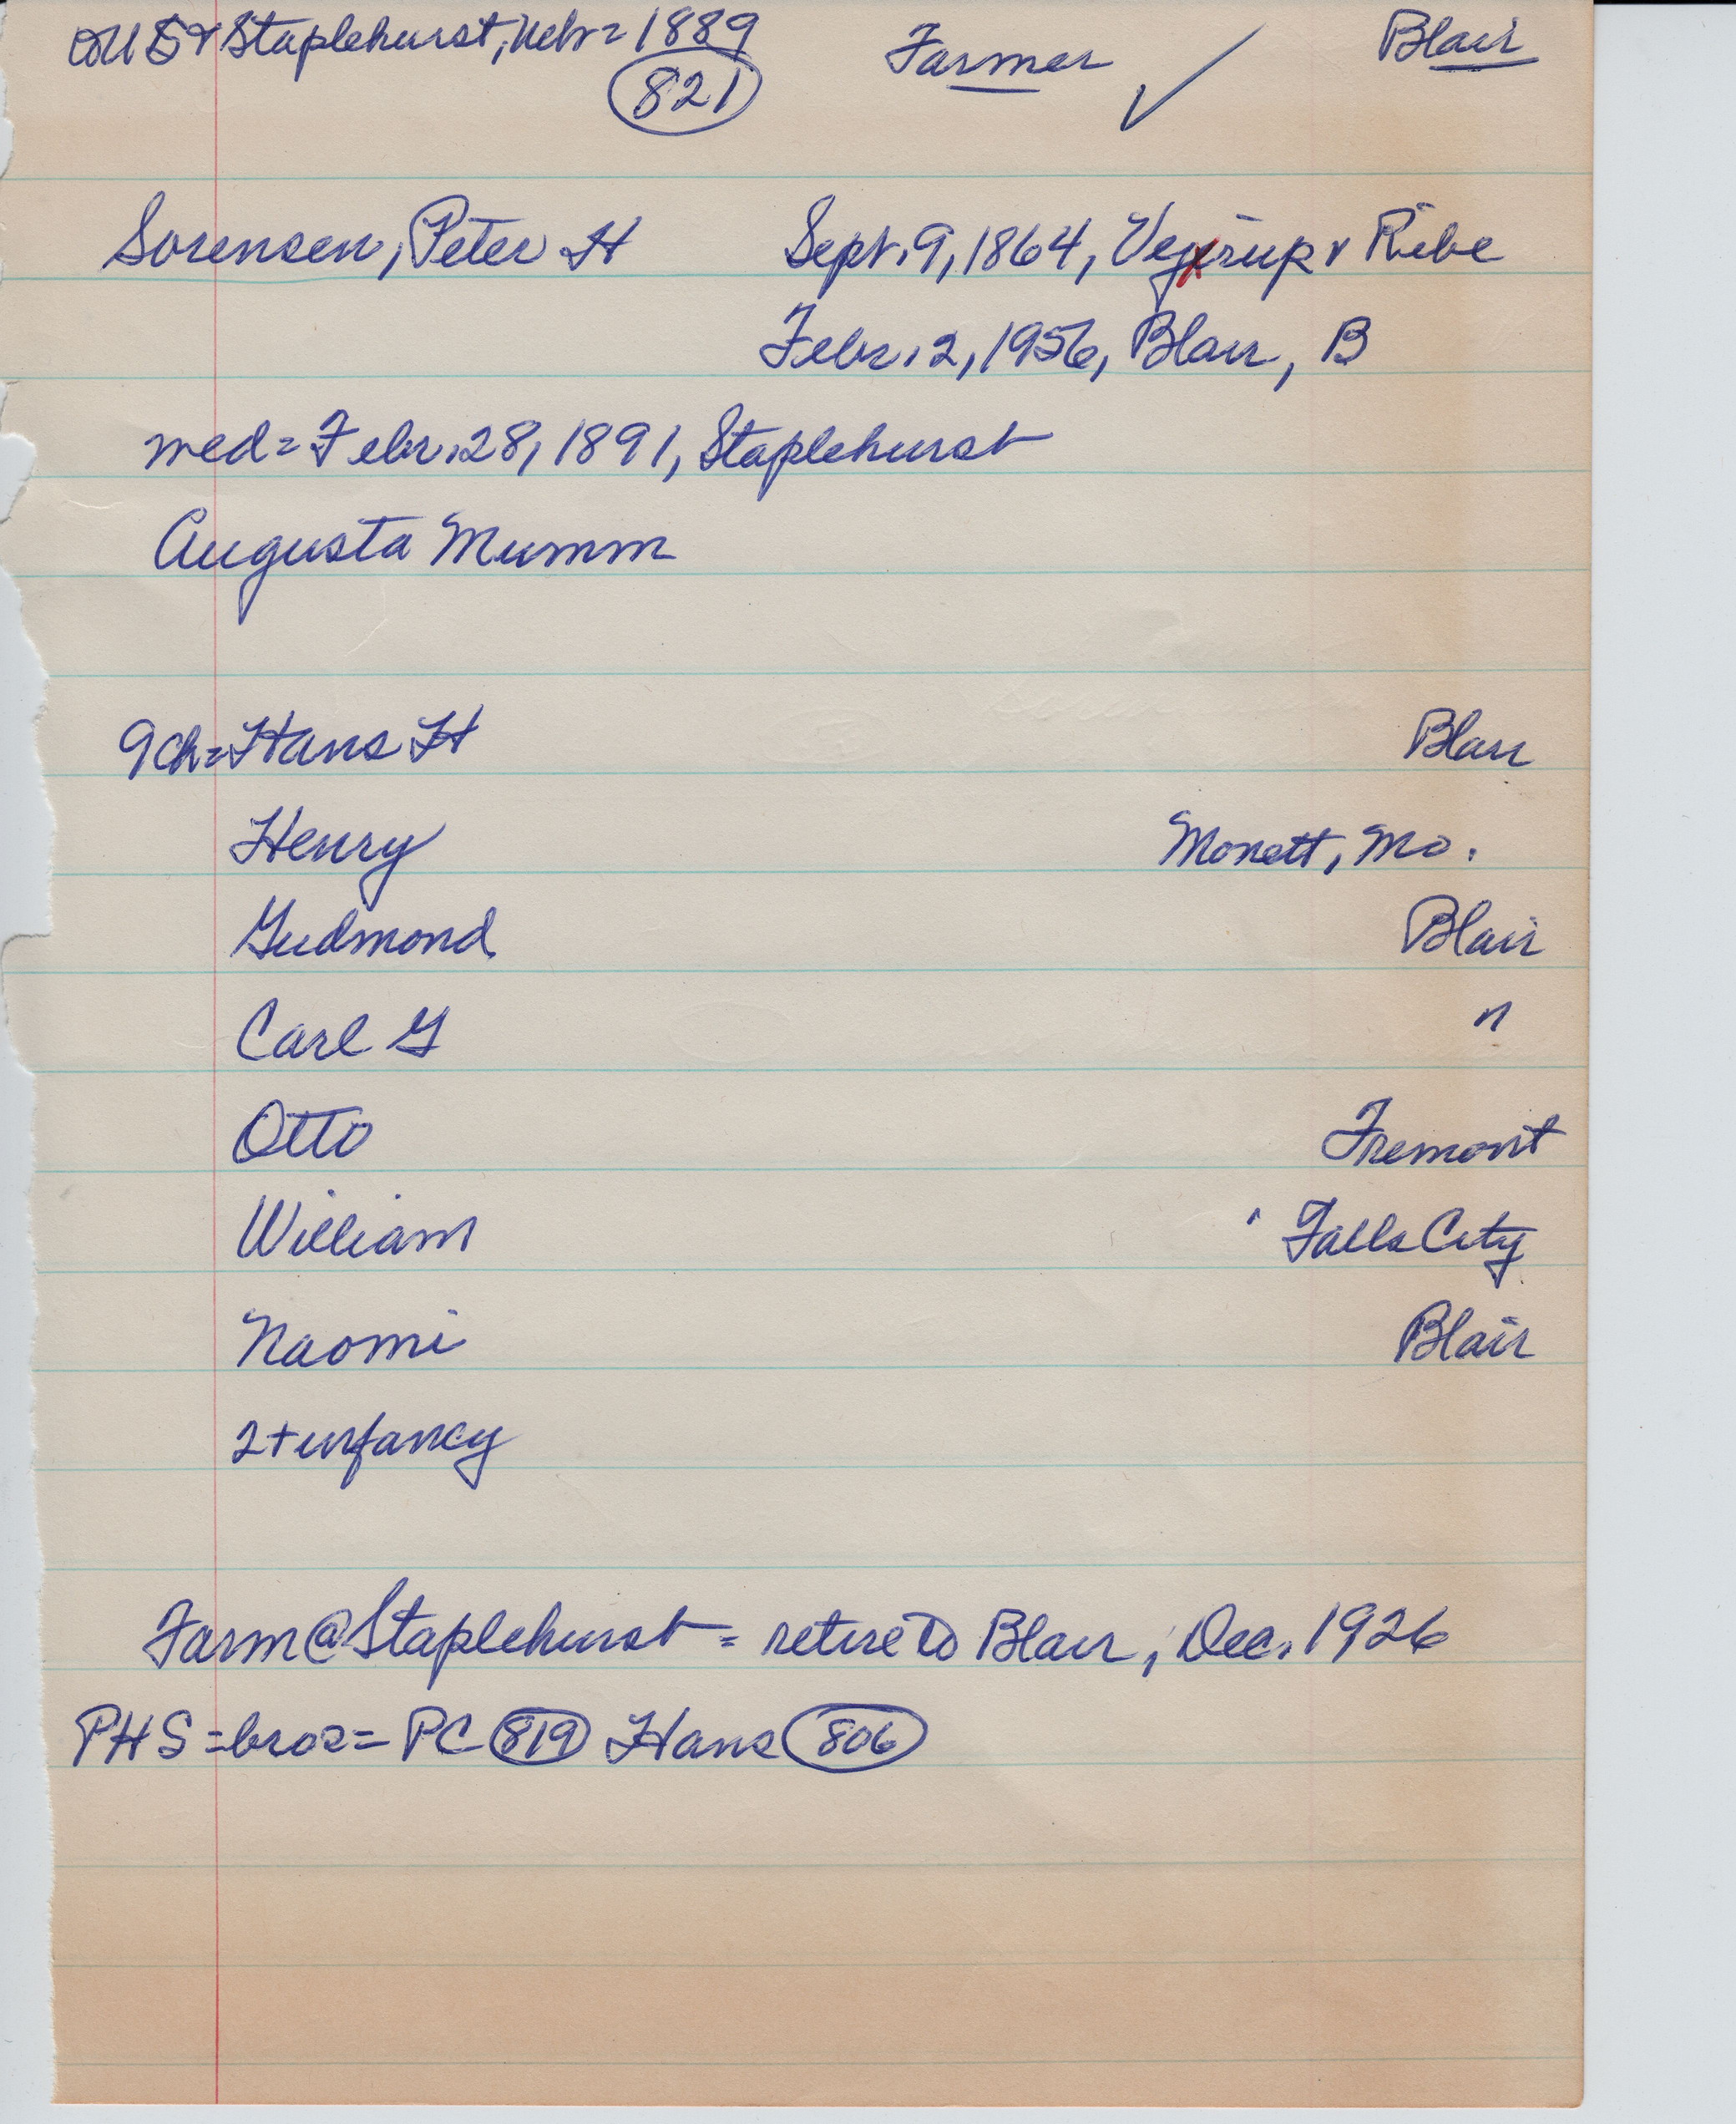 US & Staplehurst, Nebr = 1889 Farmer ✓ Blair
821
Sorensen, Peter H Sept. 9, 1864, Vejrup v Ribe
Febr. 2, 1956, Blair, B
wed = Febr. 28, 1891, Staplehurst
Augusta Mumm
9 ch = Hans H Blair
Henry Monett, Mo.
Gudmond Blair
Carl G "
Otto Fremont
William Falls City
Naomi Blair
2 + infancy
Farm @ Staplehurst = retire to Blair, Dec. 1926
PHS = bros = PC 819 Hans 806